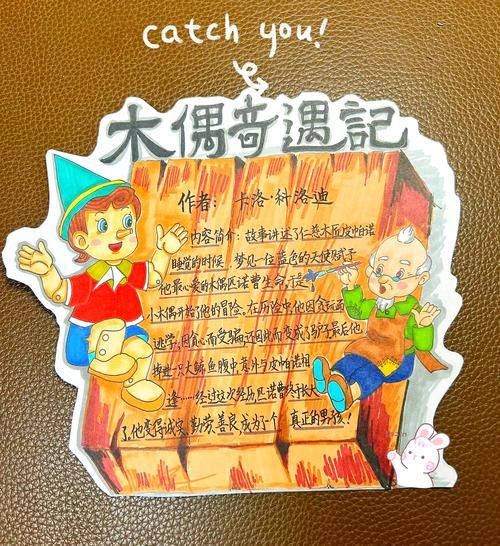 catch you!
木偶奇遇記
作者：卡洛·科洛迪
内容简介：故事讲述了仁慈木匠皮帕诺
睡觉的时候，梦见一位蓝色的天使赋予
他最心爱的木偶匹诺曹生命，于是
小木偶开始了他的冒险。在历险中，他因贪玩而
逃学，因贪心而受骗，还因此而变成了驴子。最后，他
掉进一只大鲸鱼腹中，意外与皮帕诺相
逢……经过这次经历，匹诺曹终于长大
了，他变得诚实、勤劳、善良，成为了个真正的男孩！